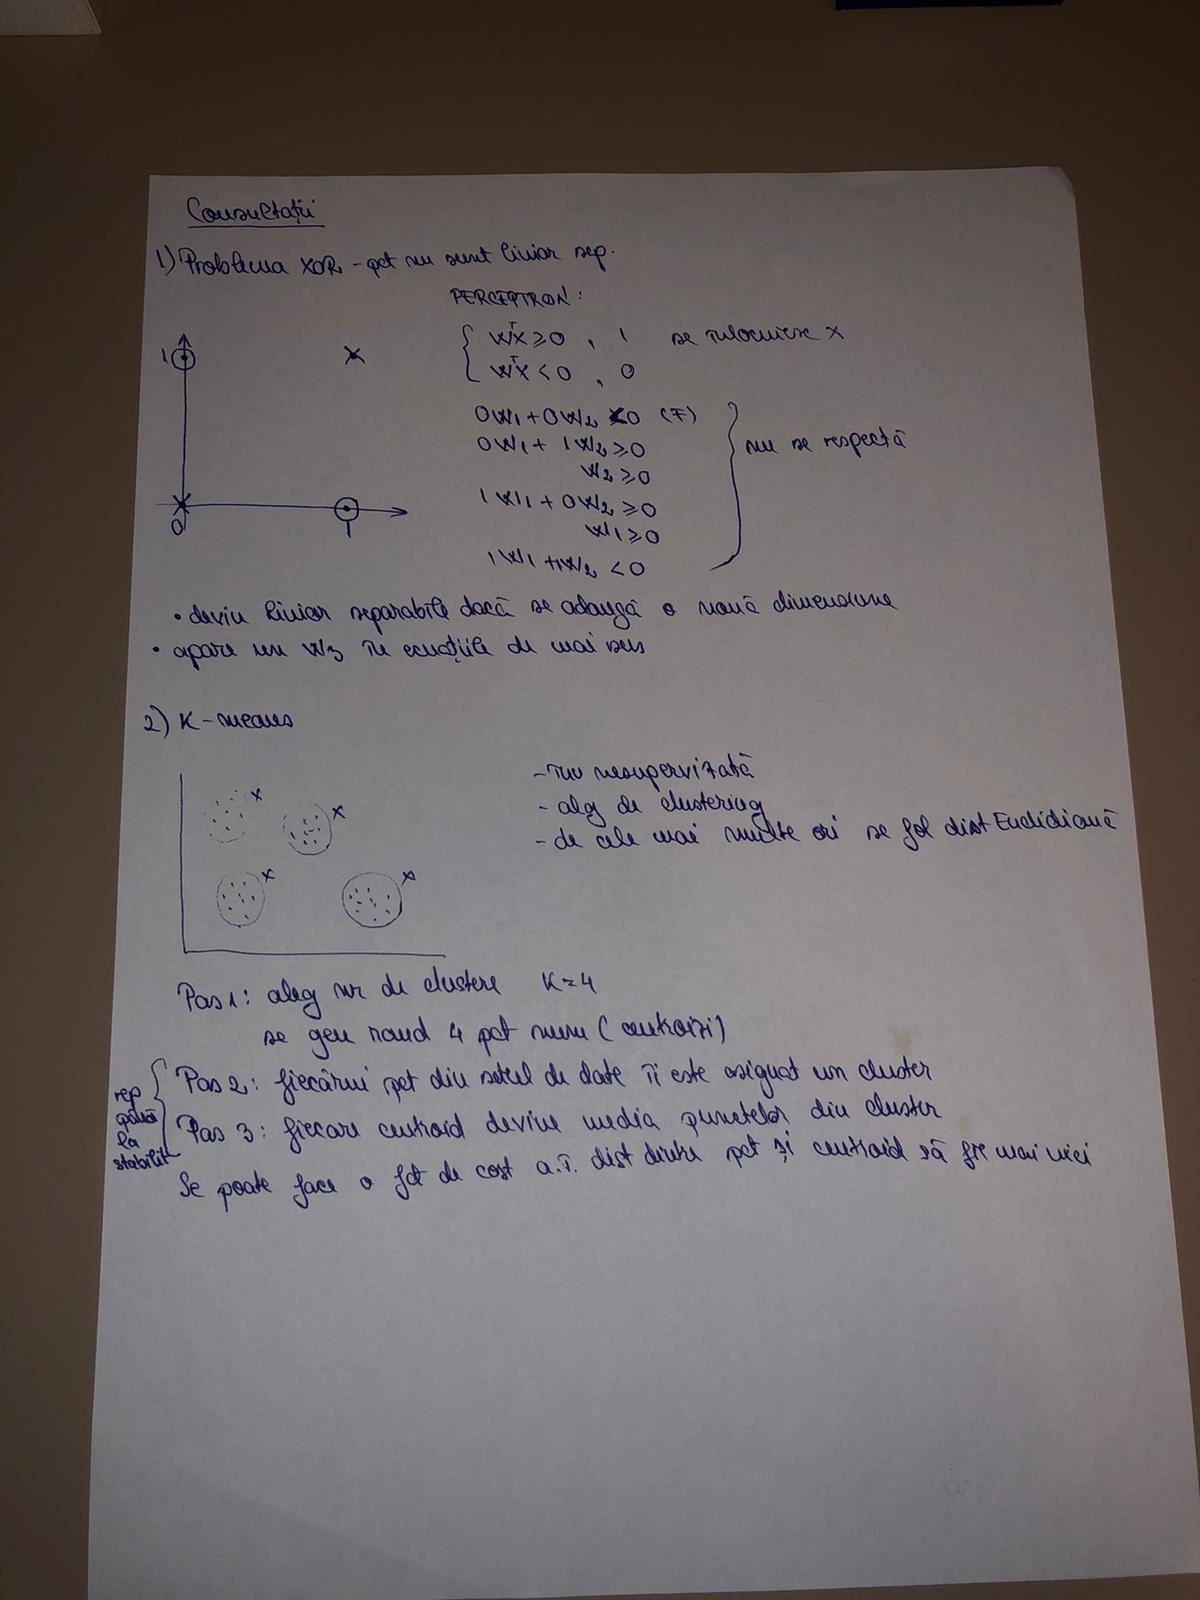 Consultații
1) Problema XOR - pct nu sunt liniar sep.
PERCEPTRON:
wᵀx ≥ 0 , 1 se înlocuiesc x
wᵀx < 0 , 0
0w₁ + 0w₂ < 0 (F)
0w₁ + 1w₂ ≥ 0
w₂ ≥ 0
1w₁ + 0w₂ ≥ 0
w₁ ≥ 0
1w₁ + 1w₂ < 0
nu se respectă
1
0
1
• devin liniar separabile dacă se adaugă o nouă dimensiune
• apare un w₃ în ecuațiile de mai sus
2) K-means
- înv nesupervizată
- alg de clustering
- de cele mai multe ori se fol dist Euclidiană
Pas 1: aleg nr de clustere K=4
se gen rand 4 pct (centroizi)
rep până la stabilit
Pas 2: fiecărui pct din setul de date îi este asignat un cluster
Pas 3: fiecare centroid devine media punctelor din cluster
Se poate face o fct de cost a.î. dist dintre pct și centroid să fie mai mici